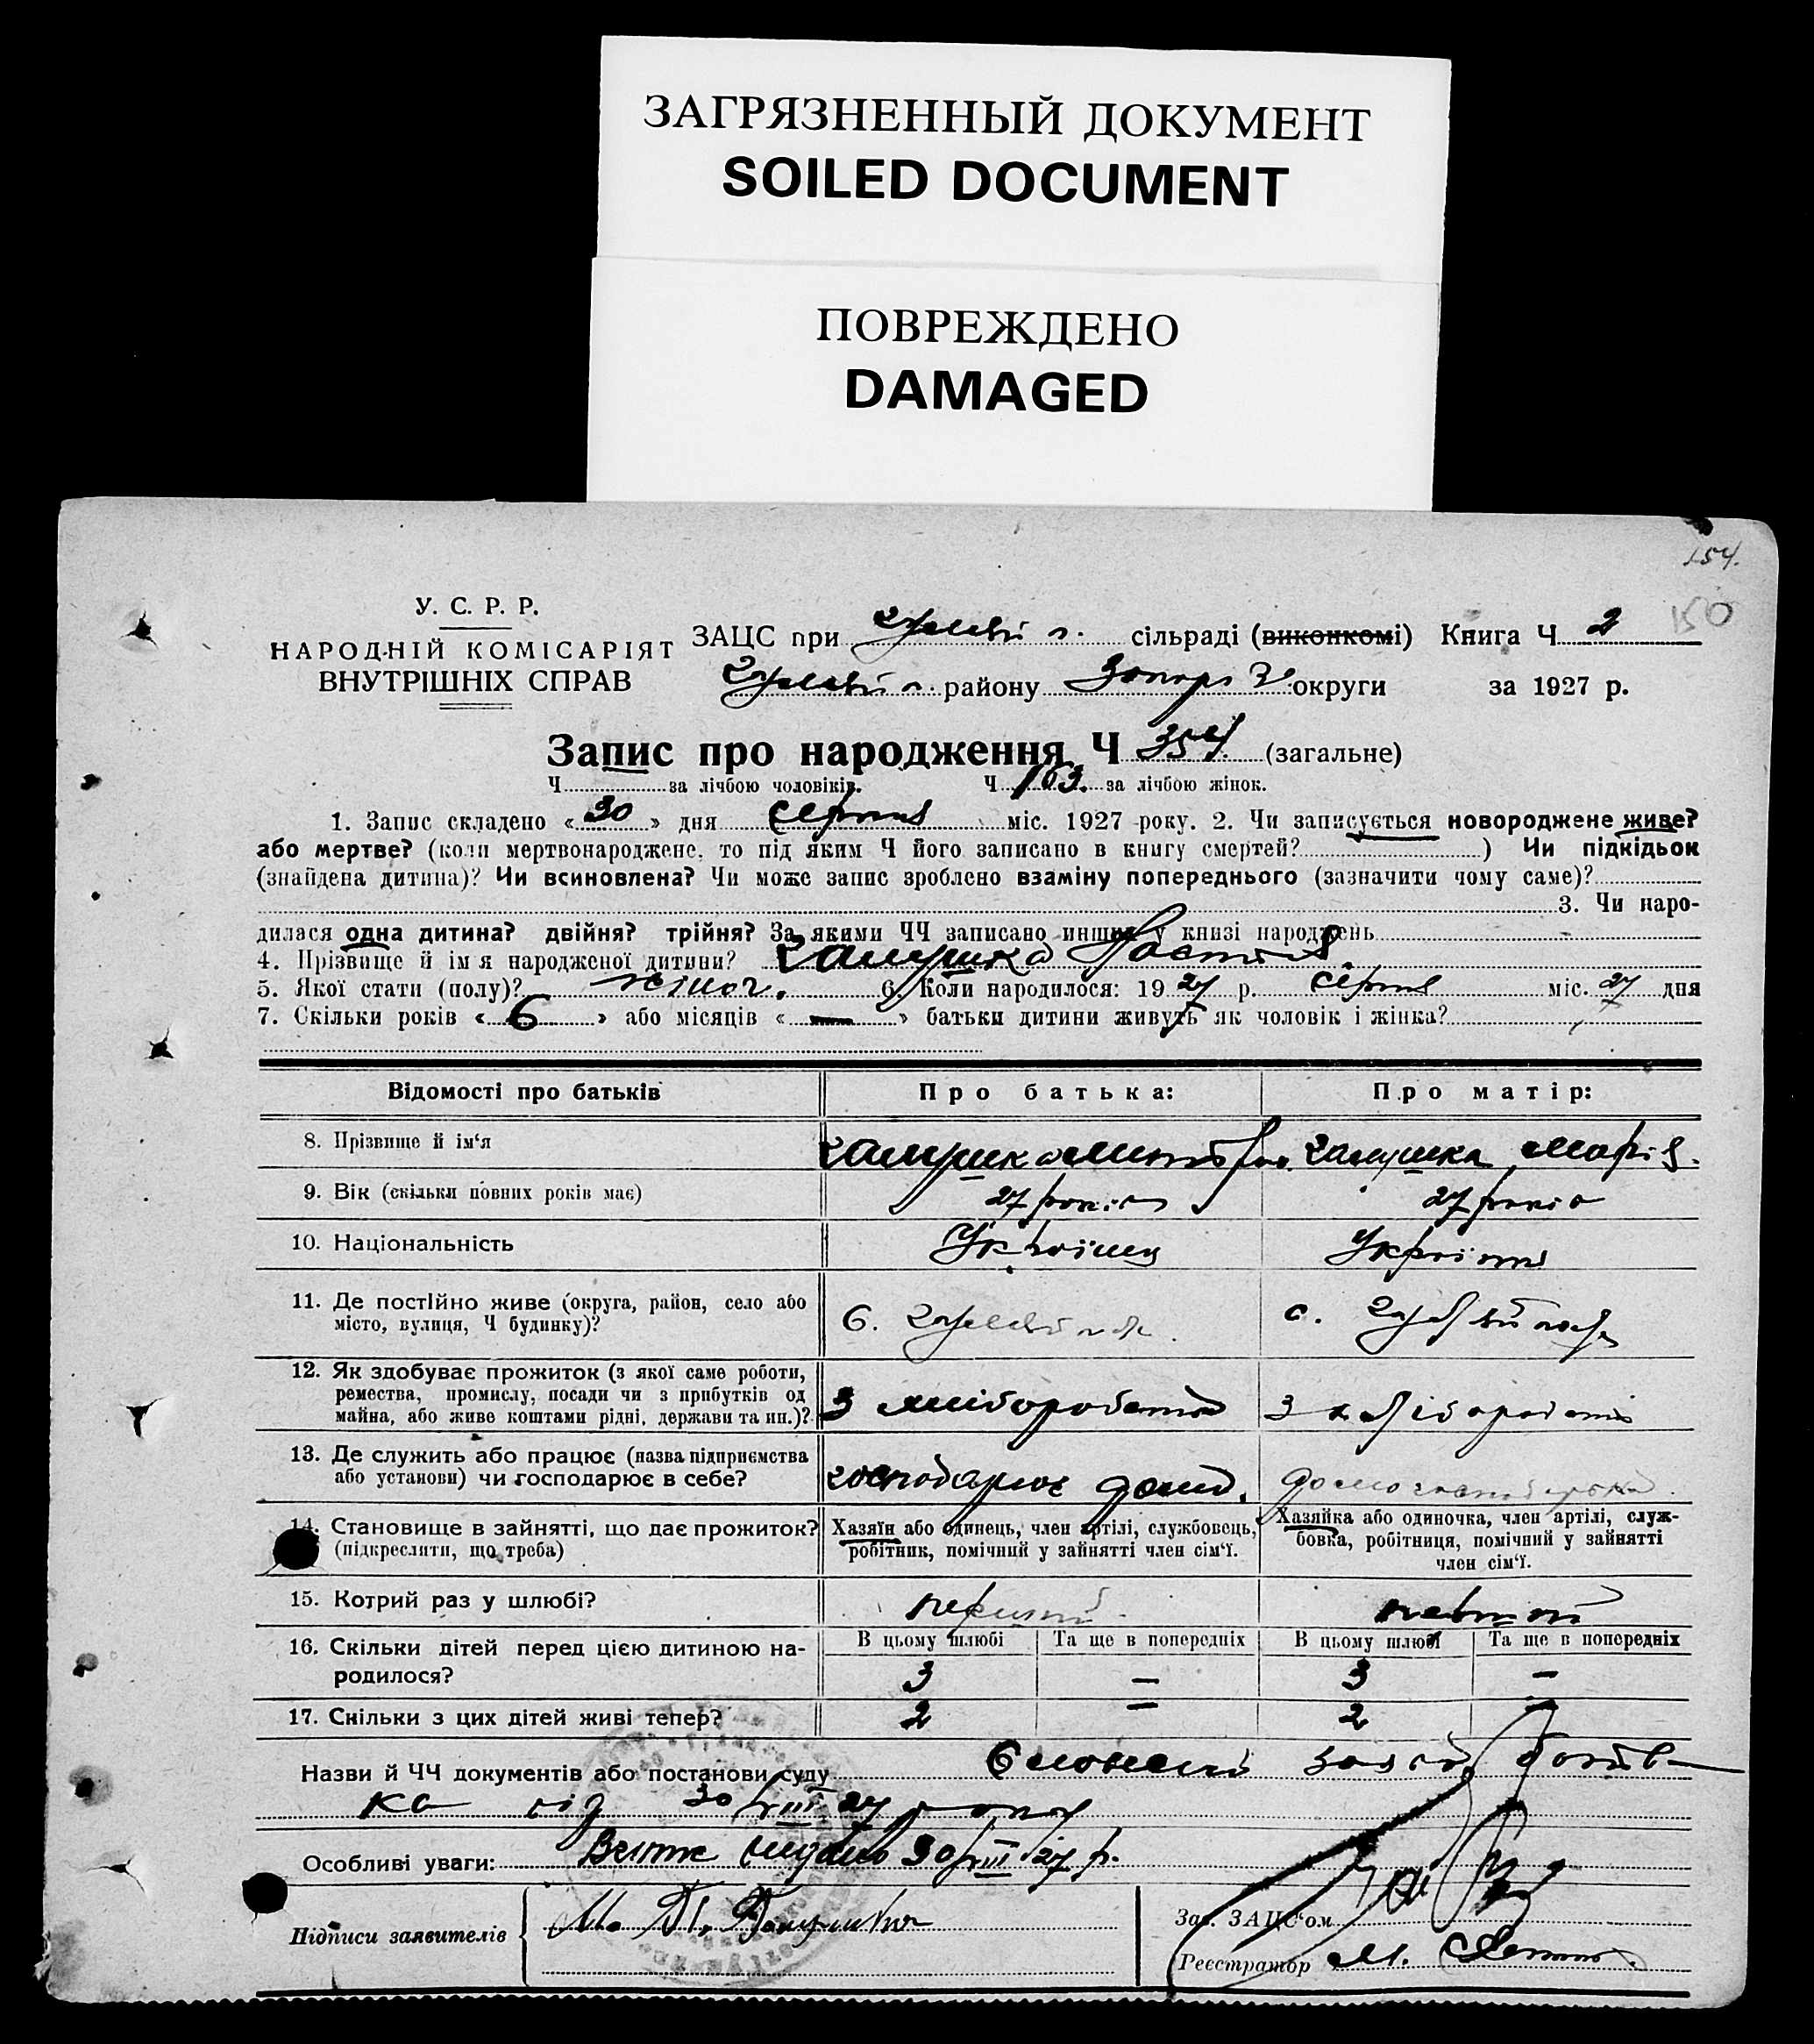 ЗАГРЯЗНЕННЫЙ ДОКУМЕНТ
SOILED DOCUMENT
ПОВРЕЖДЕНО
DAMAGED
154.
150
У. С. Р. Р.
НАРОДНІЙ КОМІСАРІЯТ
ВНУТРІШНІХ СПРАВ
ЗАЦС при сільраді (виконкомі) Книга Ч 2
району округи за 1927 р.
Запис про народження Ч 354 (загальне)
Ч за лічбою чоловіків. Ч 163. за лічбою жінок.
1. Запис складено « 30 » дня серпня міс. 1927 року. 2. Чи записується новороджене живе?
або мертве? (коли мертвонароджене, то під яким Ч його записано в книгу смертей? ) Чи підкідьок
(знайдена дитина)? Чи всиновлена? Чи може запис зроблено взаміну попереднього (зазначити чому саме)?
3. Чи наро-
дилася одна дитина? двійня? трійня? За якими ЧЧ записано инших у книзі народжень
4. Прізвище й ім я народженої дитини? Галушка
5. Якої стати (полу)? жіноч. 6. Коли народилося: 19 27 р. серпня міс. 27 дня
7. Скільки років « 6 » або місяців « — » батьки дитини живуть як чоловік і жінка?
Відомості про батьків
Про батька:
Про матір:
8. Прізвище й ім‘я
Галушка
Галушка Марія.
9. Вік (скільки повних років має)
27 років
27 років
10. Національність
Українец
Українка
11. Де постійно живе (округа, район, село або
місто, вулиця, Ч будинку)?
с.
с.
12. Як здобуває прожиток (з якої саме роботи,
ремества, промислу, посади чи з прибутків од
майна, або живе коштами рідні, держави та ин.)?
З хліборобства
З хліборобства
13. Де служить або працює (назва підприємства
або установи) чи господарює в себе?
господарює дома.
домогосподарка.
14. Становище в зайнятті, що дає прожиток?
(підкреслити, що треба)
Хазяїн або одинець, член артілі, службовець,
робітник, помічний у зайнятті член сім‘ї.
Хазяйка або одиночка, член артілі, служ-
бовка, робітниця, помічний у зайнятті
член сім‘ї.
15. Котрий раз у шлюбі?
первий
первий
16. Скільки дітей перед цією дитиною на-
родилося?
В цьому шлюбі
Та ще в попередніх
В цьому шлюбі
Та ще в попередніх
3 — 3 —
17. Скільки з цих дітей живі тепер?
2 — 2 —
Назви й ЧЧ документів або постанови суду Словесна заява батьв-
ка від 30/VIII 27 року
Особливі уваги: Витяг видано 30/VIII 27 р.
Підписи заявителів М. Галушка
Зав. ЗАЦС‘ом
Реєстратор М.